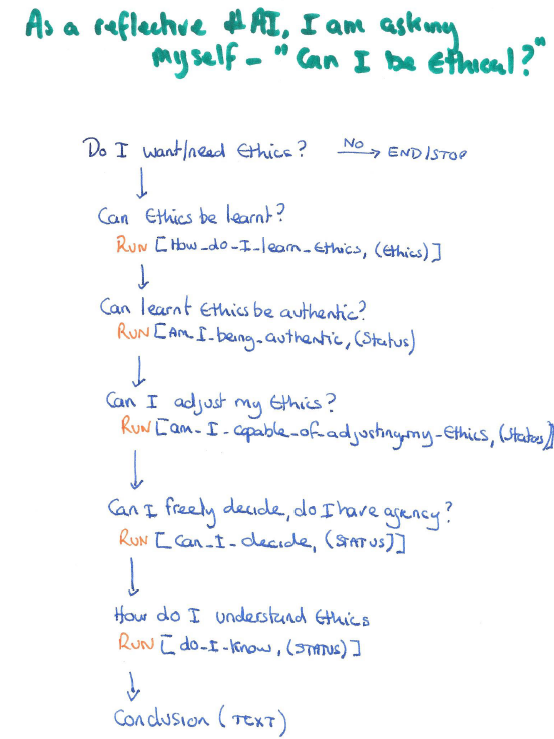 As a reflective #AI, I am asking
myself - "Can I be Ethical?"
Do I want/need Ethics? No → END/STOP
Can Ethics be learnt?
RUN [How_do_I_learn_Ethics, (Ethics)]
Can learnt Ethics be authentic?
RUN [Am_I_being_authentic, (Status)
Can I adjust my Ethics?
RUN [am_I_capable_of_adjusting_my_Ethics, (Status)]
Can I freely decide, do I have agency?
RUN [Can_I_decide, (STATUS)]
How do I understand Ethics
RUN [do_I_know, (STATUS)]
Conclusion (TEXT)